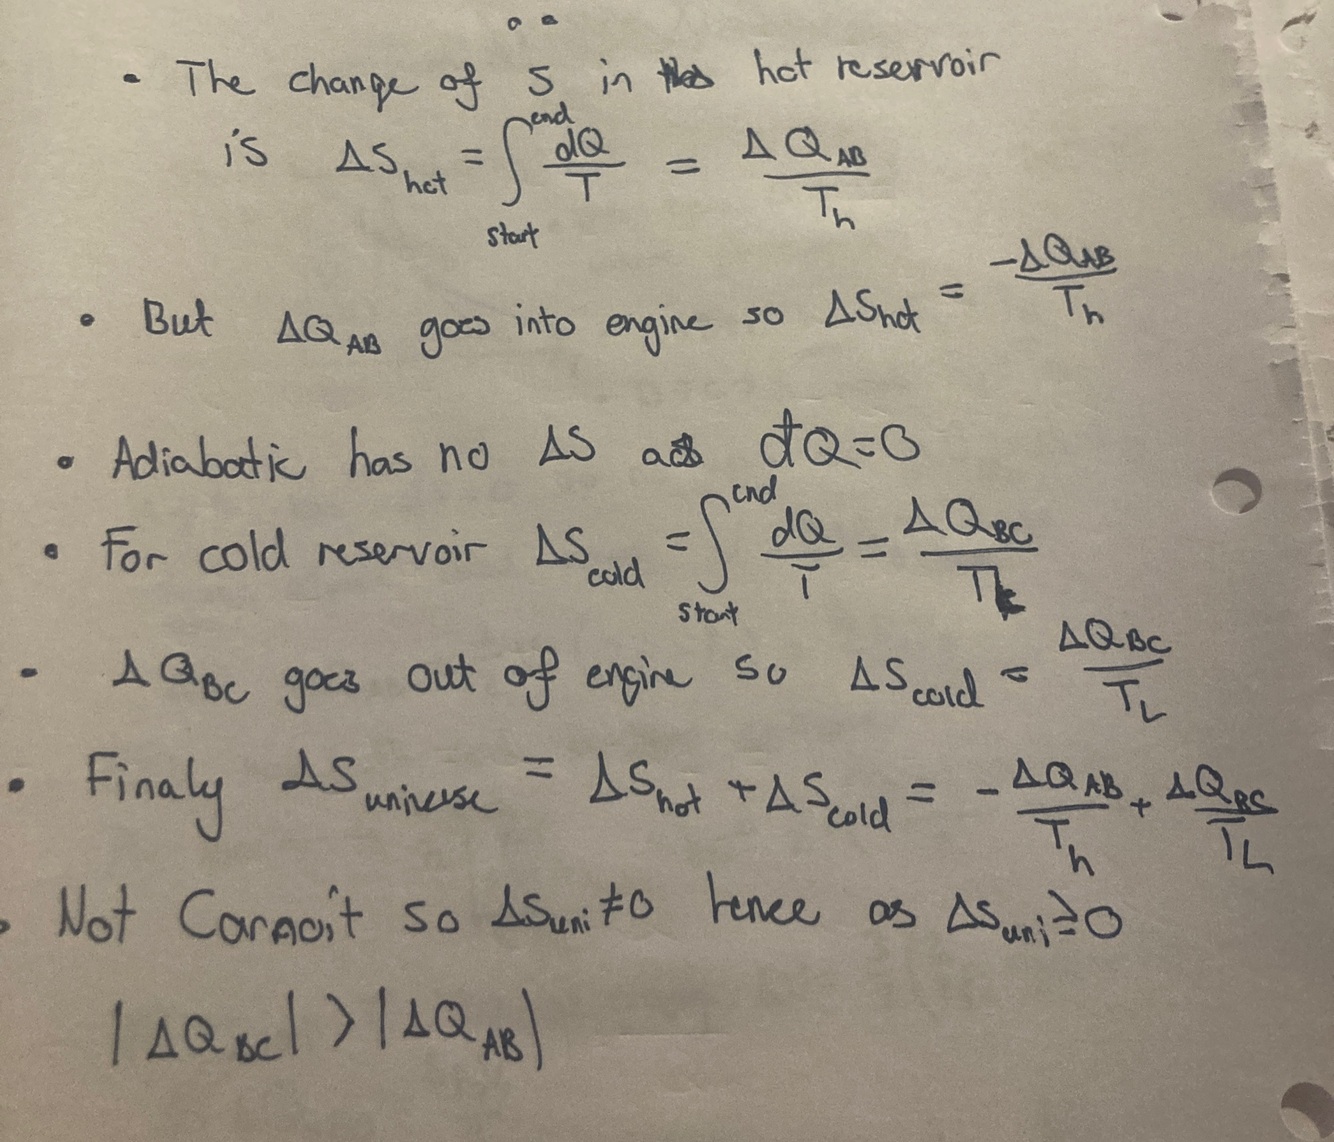 • The change of S in hot reservoir
is ΔS_hot = ∫_start^end dQ/T = ΔQ_AB/T_h
• But ΔQ_AB goes into engine so ΔS_hot = -ΔQ_AB/T_h
• Adiabatic has no ΔS as đQ=0
• For cold reservoir ΔS_cold = ∫_start^end dQ/T = ΔQ_BC/T
- ΔQ_BC goes out of engine so ΔS_cold = ΔQ_BC/T_L
• Finaly ΔS_universe = ΔS_hot + ΔS_cold = -ΔQ_AB/T_h + ΔQ_BC/T_L
• Not Carnoit so ΔS_uni≠0 hence as ΔS_uni≥0
|ΔQ_BC| > |ΔQ_AB|